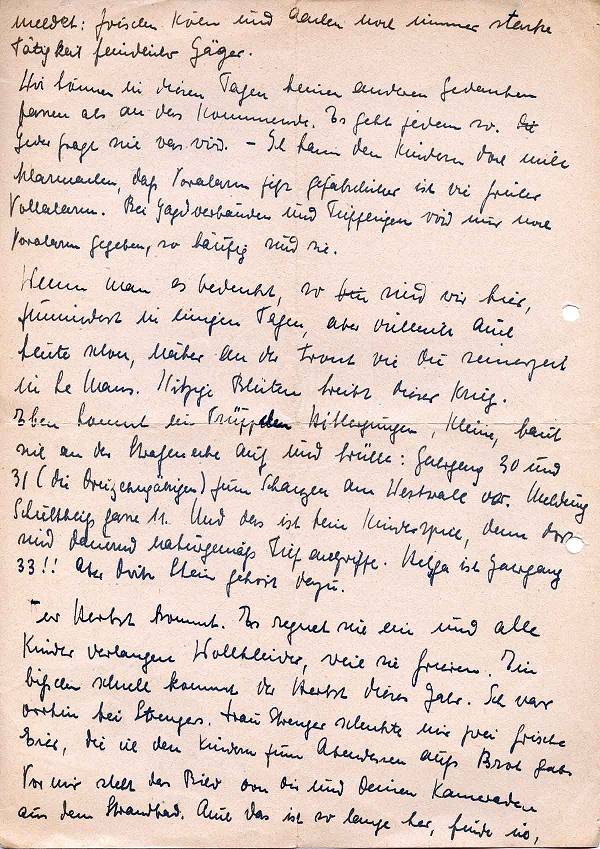 meldet: zwischen Köln und Aachen noch immer starke
Tätigkeit feindlicher Jäger.
Wir können in diesen Tagen keinen anderen Gedanken
fassen als an das Kommende. Es geht jedem so.
Jeder fragt sich was wird. – Ich kann den Kindern doch nicht
klarmachen, daß Voralarm jetzt gefährlicher ist wie früher
Vollalarm. Bei Jagdverbänden und Tieffliegern wird nur noch
Voralarm gegeben, so häufig sind sie.
Wenn man es bedenkt, so sind wir hier,
zumindest in einigen Tagen, aber vielleicht auch
heute schon, näher an der Front wie Du seinerzeit
in Le Mans. Witzige Blüten treibt dieser Krieg.
Eben kommt ein Trüppchen Hitlerjungen, klein, baut
sich an der Straßenecke auf und brüllt: Jahrgang 30 und
31 (die Dreizehnjährigen) zum Schanzen am Westwall vor. Meldung
Schultheiß 11. Und das ist kein Kinderspiel, denn dort
sind dauernd naturgemäß Tiefangriffe. Helga ist Jahrgang
33!! Aber Stein gehört dazu.
Der Herbst kommt. Es regnet sich ein und alle
Kinder verlangen Wollkleider, weil sie frieren. Ein
bißchen schnell kommt der Herbst dieses Jahr. Ich war
vorhin bei Strengers. Frau Strenger schenkte mir zwei frische
Eier, die ich den Kindern zum Abendessen aufs Brot gab.
Vor mir steht das Bild von Dir und Deinen Kameraden
aus dem Strandbad. Auch das ist so lange her, finde ich,